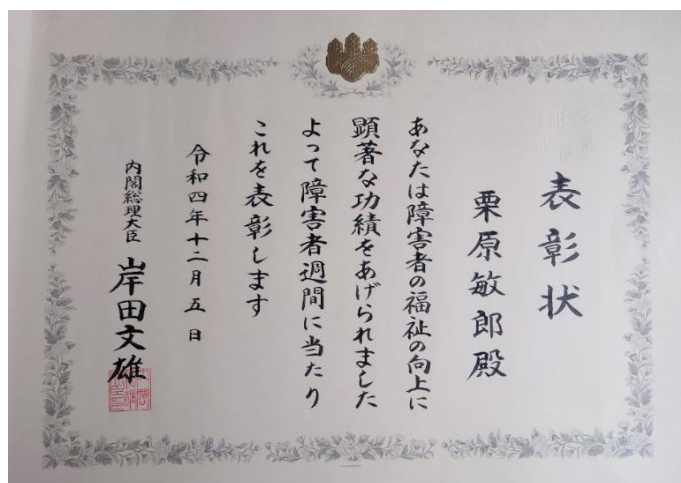 表彰状
栗原敏郎殿
あなたは障害者の福祉の向上に
顕著な功績をあげられました
よって障害者週間に当たり
これを表彰します
令和四年十二月五日
内閣総理大臣 岸田文雄